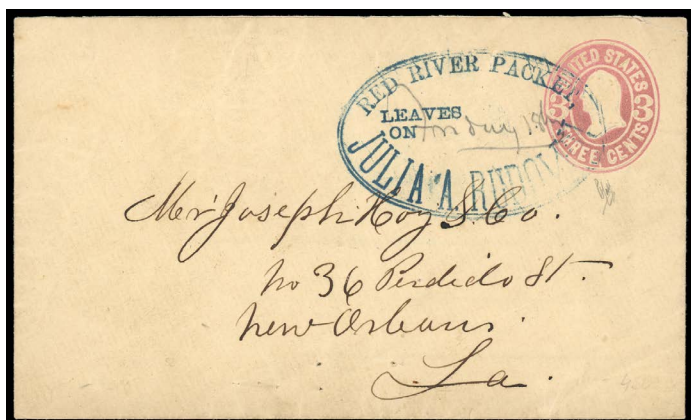 RED RIVER PACKET,
LEAVES
ON Monday 18
JULIA A. RUDOLPH
UNITED STATES
3 3
THREE CENTS
Mr Joseph Hoy & Co.
No 36 Perdido St.
New Orleans.
La.